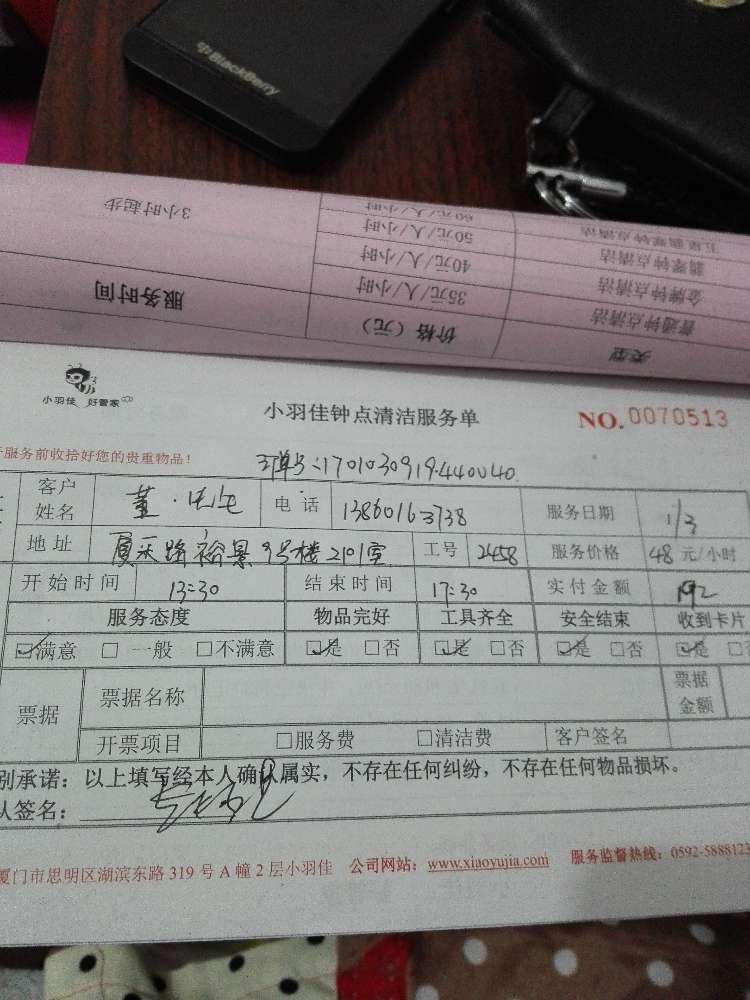 BlackBerry
60元/人/小时
五星翡翠钟点清洁
3小时起步
50元/人/小时
翡翠钟点清洁
40元/人/小时
金牌钟点清洁
35元/人/小时
普通钟点清洁
服务时间
价格（元）
类型
小羽佳 好管家
小羽佳钟点清洁服务单
NO.0070513
服务前收拾好您的贵重物品！
订单号:1701030919440040
客户姓名 董 电话 13860163738 服务日期 1/3
地址 厦禾路裕景9号楼2101室 工号 2458 服务价格 48元/小时
开始时间 13:30 结束时间 17:30 实付金额 192
服务态度 物品完好 工具齐全 安全结束 收到卡片
☑满意 □一般 □不满意 ☑是 □否 ☑是 □否 ☑是 □否 ☑是 □
票据 票据名称 票据金额
开票项目 □服务费 □清洁费 客户签名
别承诺：以上填写经本人确认属实，不存在任何纠纷，不存在任何物品损坏。
人签名：
厦门市思明区湖滨东路319号A幢2层小羽佳 公司网站：www.xiaoyujia.com 服务监督热线：0592-5888123